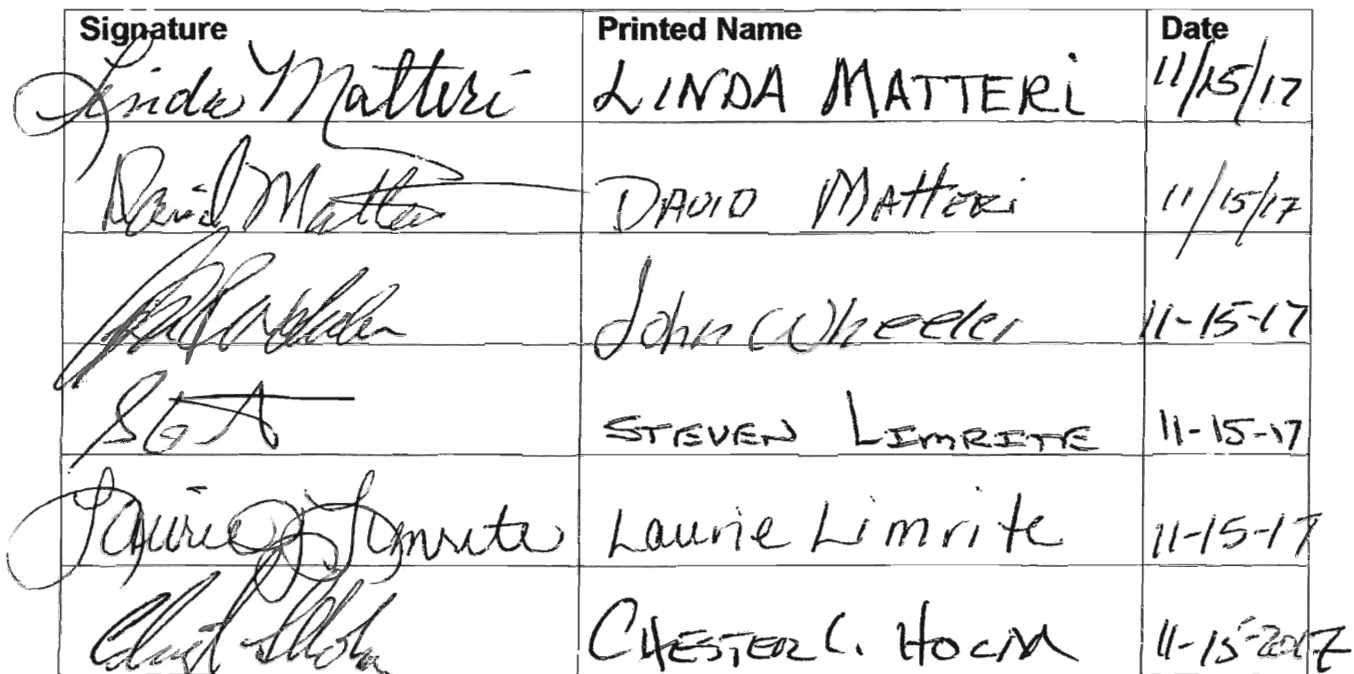 Signature Printed Name Date
Linda Matteri LINDA MATTERI 11/15/17
David Matteri DAVID MATTERI 11/15/17
John Wheeler 11-15-17
STEVEN LIMRITE 11-15-17
Laurie J Limrite Laurie Limrite 11-15-17
CHESTER C. 11-15-2017